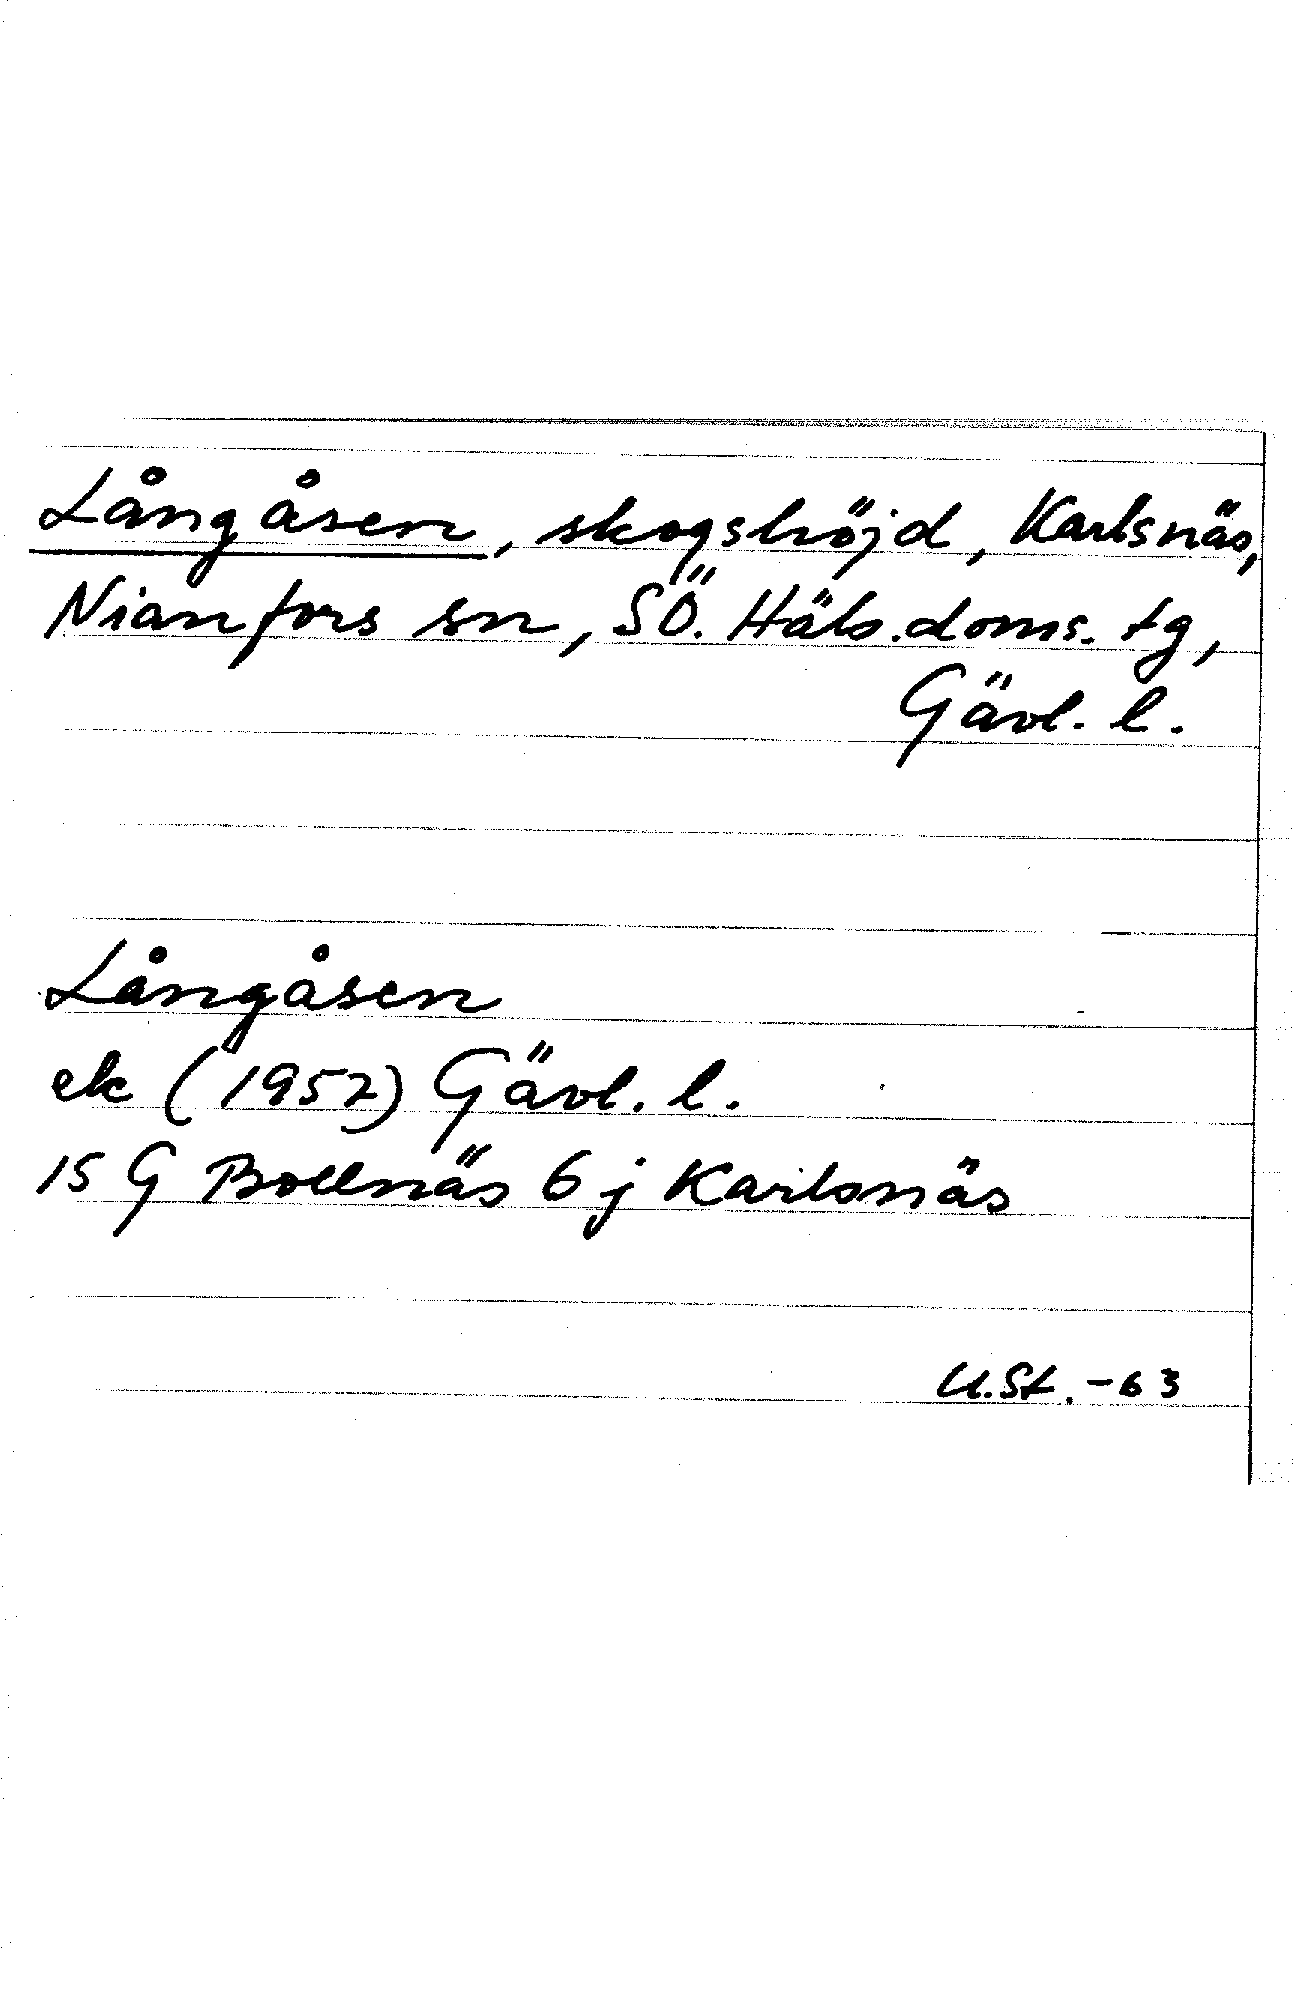 Långåsen, skogshöjd, Karlsnäs,
Nianfors sn, SÖ. Häls.doms. tg,
Gävl. l.
Långåsen
ek (1952) Gävl. l.
15 G Bollnäs 6 j Karlsnäs
U.St. -63